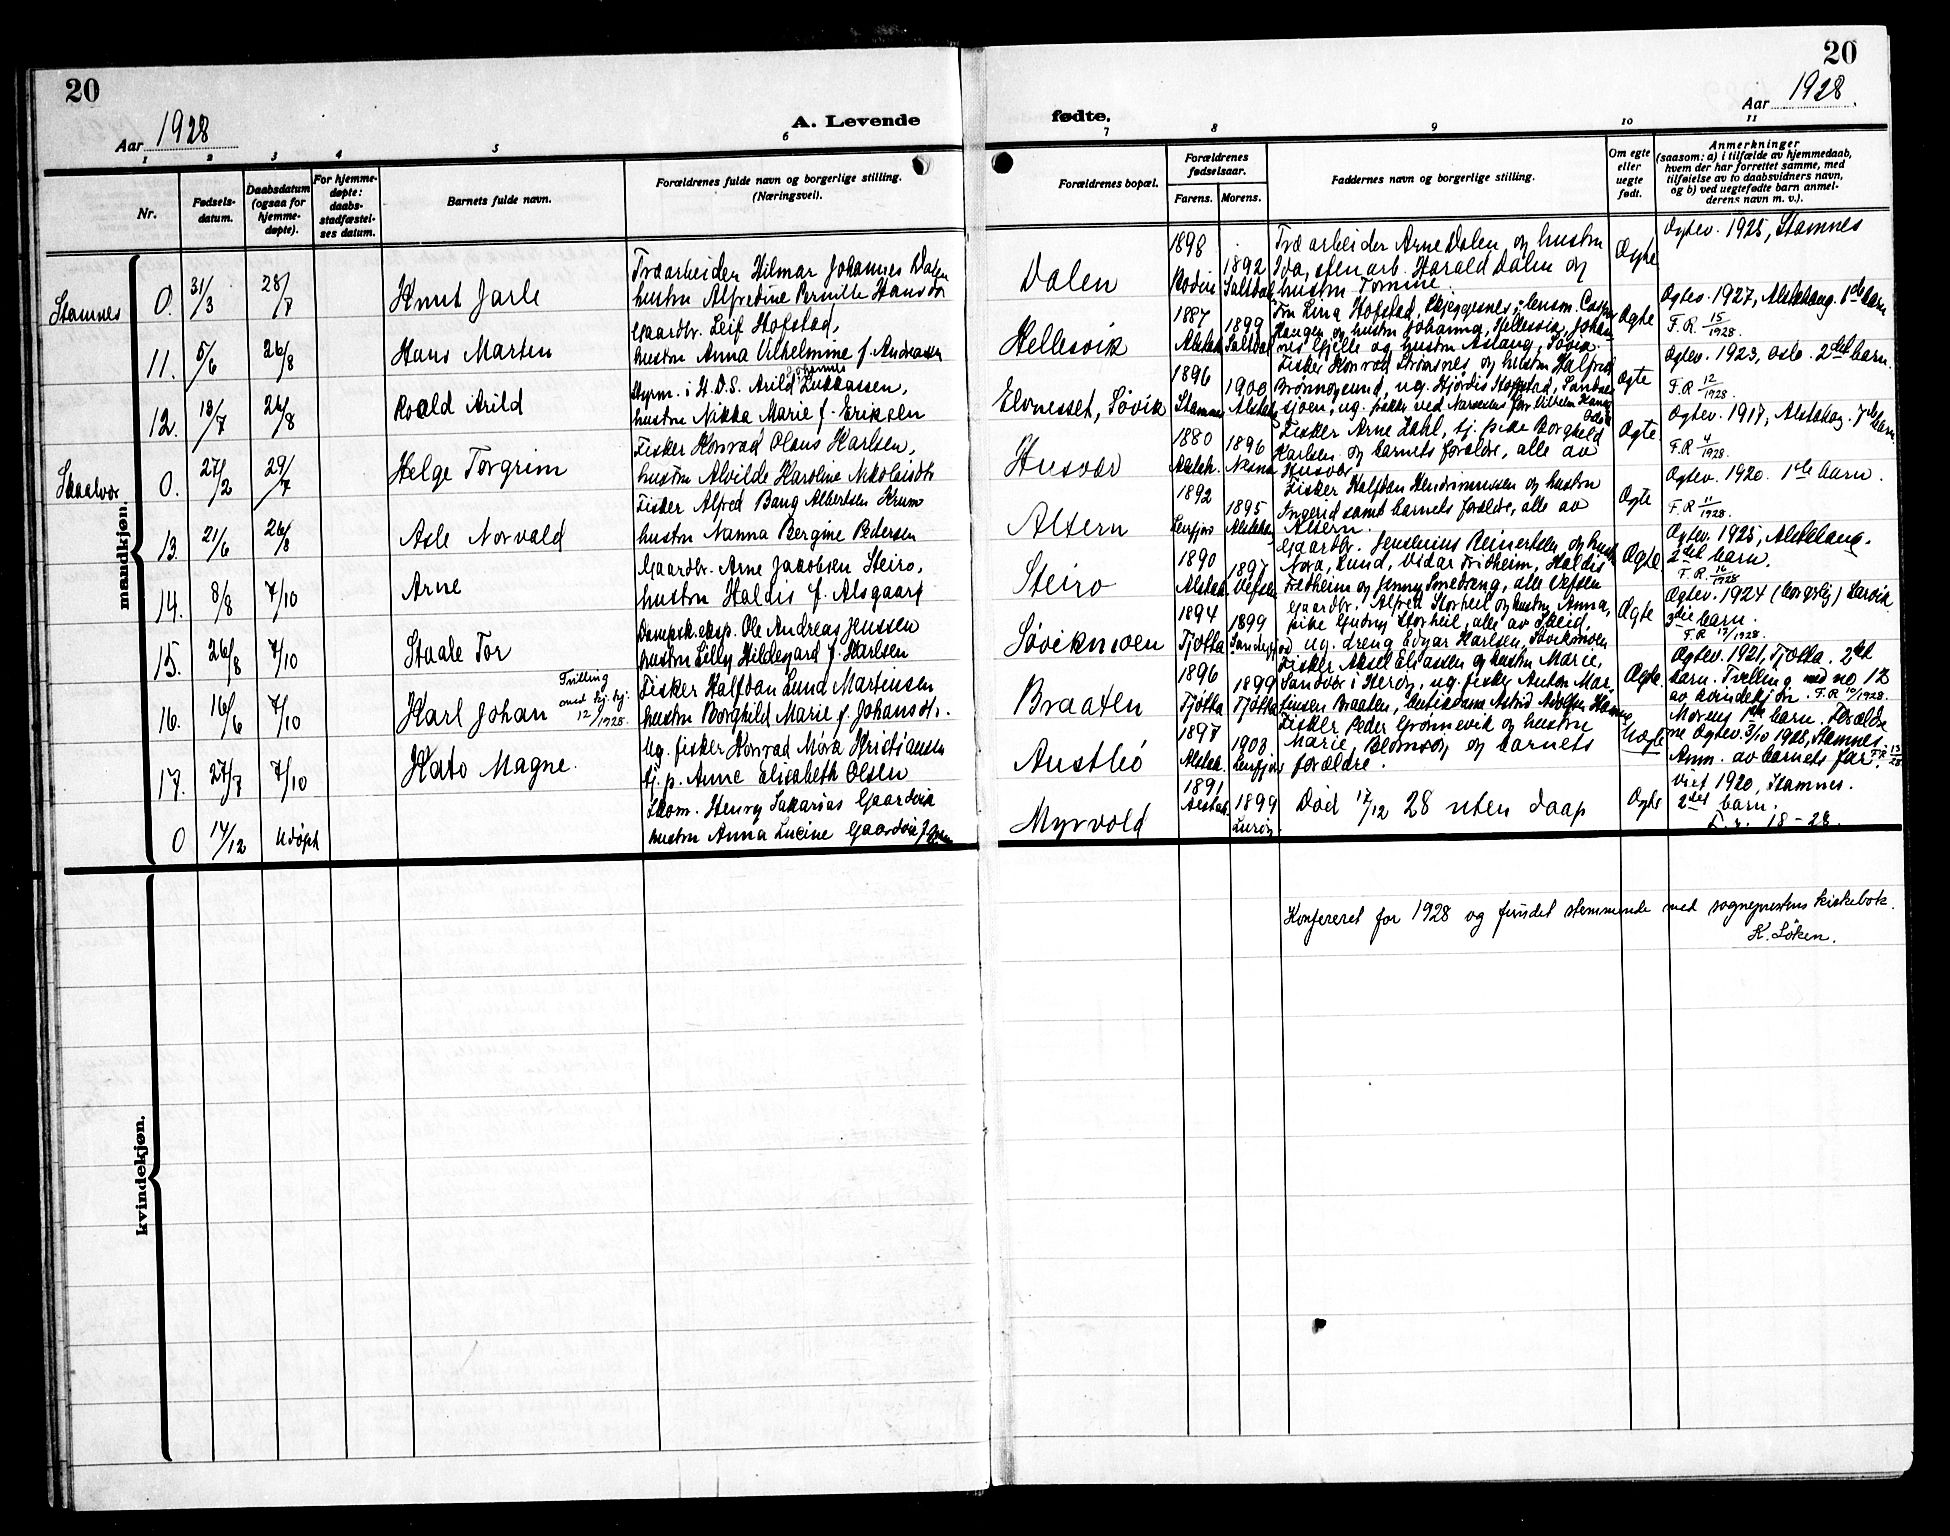 20
20
Aar 1928
Aar 1928
A. Levende fødte.
1 2 3 4 5 6 7 8 9 10 11
Nr.
Fødsels-
datum.
Daabsdatum
(ogsaa for
hjemme-
døpte).
For hjemme-
døpte:
daabs-
stadfæstel-
ses datum.
Barnets fulde navn.
Forældrenes fulde navn og borgerlige stilling.
(Næringsvei).
Forældrenes bopæl.
Forældrenes
fødselsaar.
Farens. Morens.
Faddernes navn og borgerlige stilling.
Om egte
eller
uegte
født.
Anmerkninger
(saasom: a) i tilfælde av hjemmedaab,
hvem der har forrettet samme, med
tilføielse av to daabsvidners navn,
og b) ved uegtefødte barn anmel-
derens navn m. v.).
mandkjøn.
Stamnes 0. 31/3 28/7 Knut Jarle
Træarbeider Hilmar Johannes Dalen
hustru Alfredine Pernille Hansdtr
Dalen
1898 Rodøi
1892 Saltdal
Træarbeider Arne Dalen og hustru
Ida, stenarb. Harald Dalen og
hustru
Ægte
Ægtev. 1925, Stamnes
11. 5/6 26/8 Hans Martin
Gaardbr. Leif Hofstad,
hustru Anna Vilhelmine f. Andreassen
Hellesvik
1887 Alstah
1899 Saltdal
Fru Lina Hofstad, Skjeggesnes, lensm. Casper
Haugen og hustru Johanna, Hellesvik, Johan-
nes Gjelle og hustru Aslaug, Søvik.
Ægte
Ægtev. 1927, Alstahaug. 1ste barn
F. R. 15/1928.
12. 18/7 26/8 Roald Arild
Styrm. i H.D.S. Arild Johannes Lukkassen,
hustru Nikka Marie f. Eriksen
Elvnesset, Søvik
1896 Stamnes
1900 Alstah
Fisker Konrad Strøsnes og hustru Halfrid
Brønnøysund, ug. Hjørdis Hofstad, Sandnes-
sjøen, ug.
Ægte
Ægtev. 1923, Oslo. 2det barn.
F. R. 12/1928.
Skaalvær 0. 27/2 29/7 Helge Torgrim
Fisker Konrad Olaus Karlsen,
hustru Alvilde Karoline Nikolaisdtr
Husvær
1880 Alstah.
1896 Nesna
Fisker Arne Dahl, tj. pike Borghild
Karlsen og barnets forældre, alle av
Husvær.
Ægte
Ægtev. 1917, Alstahaug. 7de barn
F. R. 4/1928.
13. 21/6 26/8 Asle Norvald
Fisker Alfred Bang Albertsen Krum
hustru Nanna Bergine Pedersen
Altern
1892 Leirfjord
1895 Alstahg
Fisker Halfdan Henrimussen og hustru
Ingerid samt barnets forældre, alle av
Altern.
Ægte
Ægtev. 1920. 1ste barn.
F. R. 11/1928.
14. 8/8 7/10 Arne
Gaardbr. Arne Jakobsen Steiro,
hustru Haldis f. Alsgaart
Steiro
1890 Alstah.
1897 Vefsen
Gaardbr. Jensenius Reinertsen og hustru
Nora, Lund, Vidar Fridheim, Haldis
Fridheim og Jenny Smedseng, alle Vefsen
Ægte
Ægtev. 1925, Alstahaug.
2det barn.
F. R. 16/1928
15. 26/8 7/10 Staale Tor
Dampsk.eksp. Ole Andreas Jenssen
hustru Lilly Hildegard f. Karlsen
Søvikmoen
1894 Tjøtta
1899 Sandefjord
Gaardbr. Alfred Storheil og hustru Anna,
pike Gudrun Storheil, alle av Skeid,
og ug. dreng Edgar Karlsen, Søvikmoen
Ægte
Ægtev. 1924 (borgerlig) Larvik
3die barn.
F. R. 17/1928.
16. 16/6 7/10 Karl Johan
Tvilling
med kv.kj.
12/1928.
Fisker Halfdan Lund Martinsen
hustru Borghild Marie f. Johansdtr.
Braaten
1896 Tjøtta
1899 Tjøtta
Fisker Aksel Eliassen og hustru Marie,
Sandvær i Herøy, ug. fisker Anton Mar-
tinsen Braaten,
Ægte.
Ægtev. 1921, Tjøtta. 2det
barn. Tvilling med no 12
av kvindekjøn. F. R. 10/1928.
17. 27/7 7/10 Kato Magne.
Ug. fisker Konrad Mörck Kristiansen
tj. p. Anne Elisabeth Olsen
Austbø
1897 Alstah.
1903 Leirfjord
Fisker Peder Grønnevik og hustru
Marie, Blomsøy og barnets
forældre.
Uægte
Morens 1ste barn. Forældre
ne Ægtev. 3/10 1928, Stamnes.
Anm. av barnets far. F.R. 13/28
0 14/12 Udøpt
Skom. Henry Sakarias Gaardvik
hustru Anna Lucine Gaardvik f.
Myrvold
1891 Alstah.
1899 Lurøy
Død 17/12 28 uten daap
Ægte
Viet 1920, Stamnes.
2det barn.
F. r. 18-28.
kvindekjøn.
Konfereret for 1928 og fundet stemmende med sogneprestens kirkebok.
K. Løken.